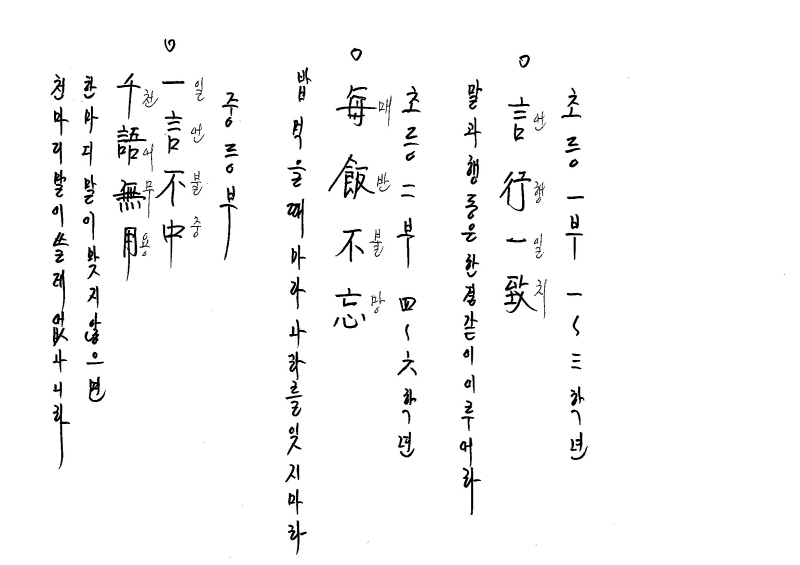 초등一부 一~三학년
○ 言行一致
언행일치
말과행동은한결같이이루어라
초등二부 四~六학년
○ 每飯不忘
매반불망
밥먹을때마다나라를잊지마라
중등부
○ 一言不中
일언불중
千語無用
천어무용
한마디말이맞지않으면
천마디말이쓸데없나니라